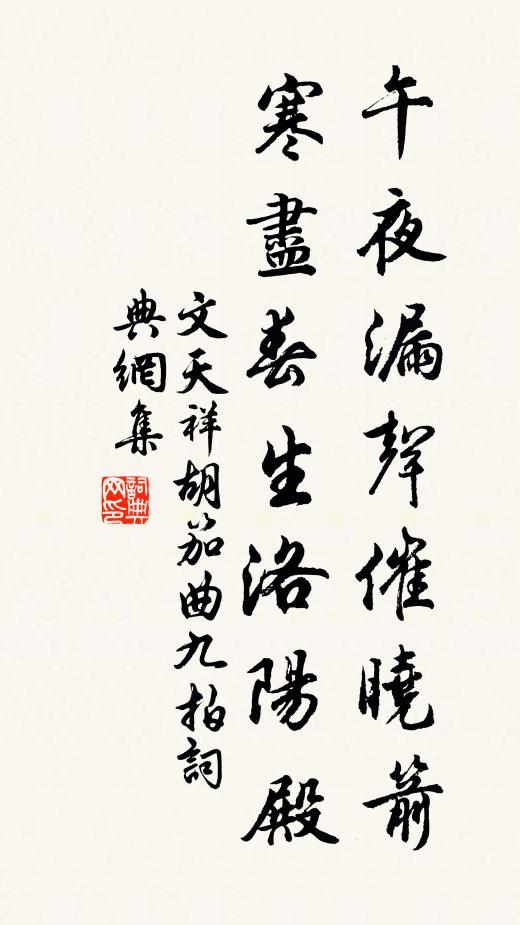 午夜漏聲催曉箭
寒盡春生洛陽殿
文天祥胡笳曲九拍詞
典網集
詞典
网印